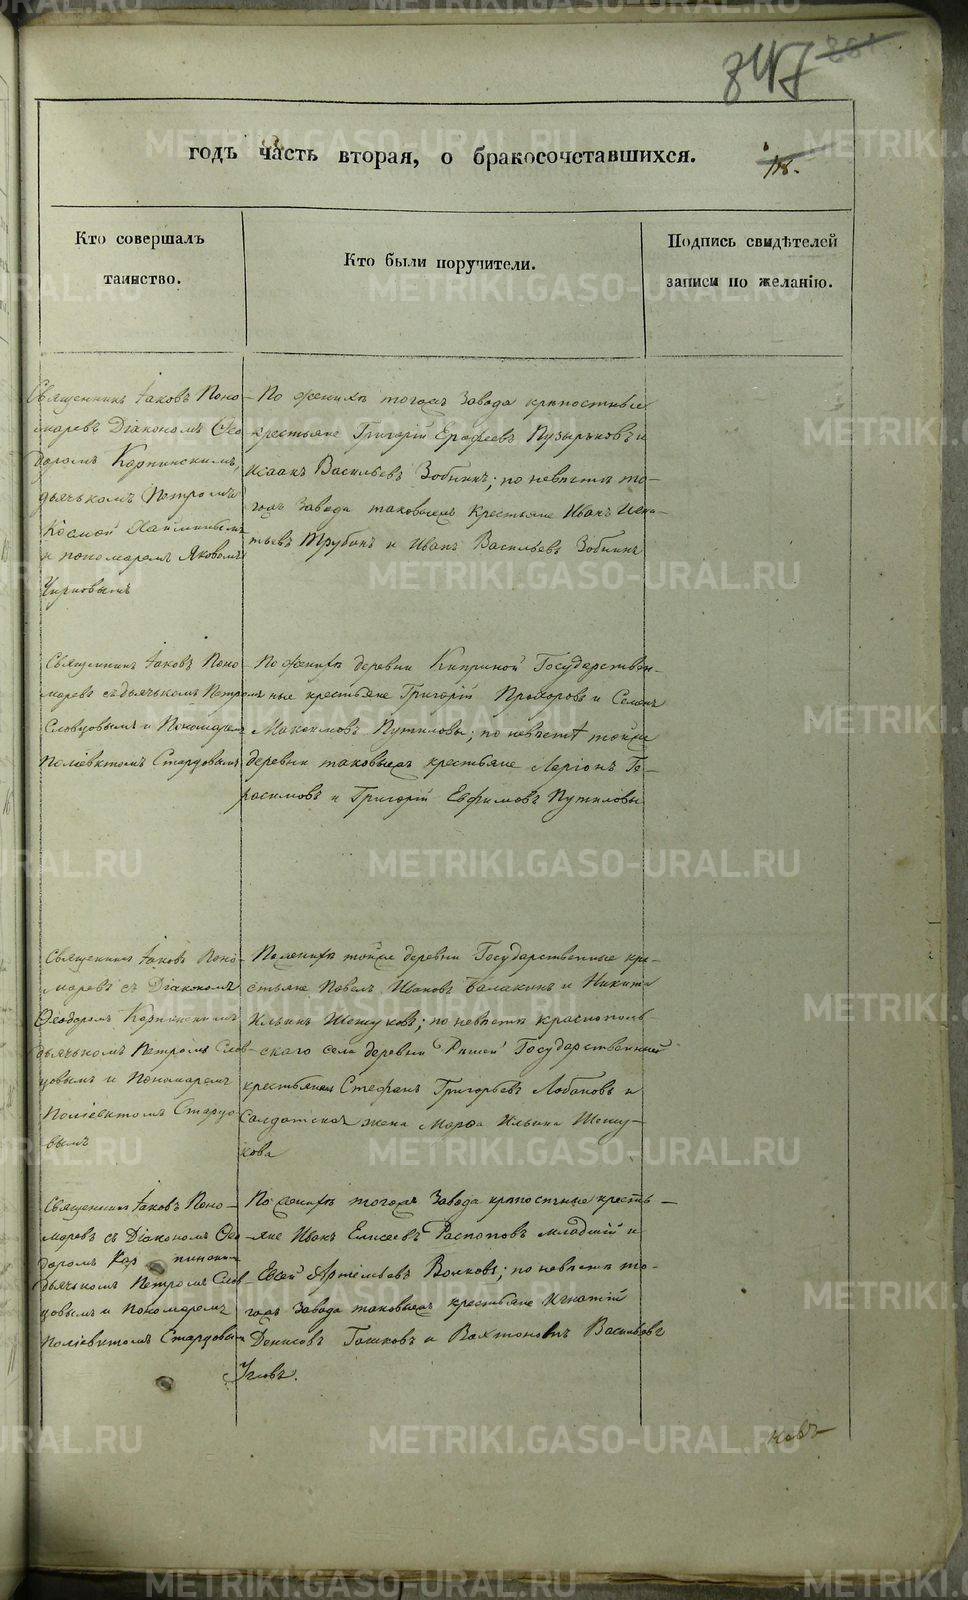 847
годъ часть вторая, о бракосочетавшихся.
118.
Кто совершалъ
таинство.
Кто были поручители.
Подпись свидѣтелей
записи по желанію.
Священникъ Іаковъ Поно-
маревъ Діакономъ Ѳео
доромъ Карпинскимъ,
дьячькомъ Петромъ
Космой
и пономаремъ Яковомъ
По женихѣ тогожъ Завода крѣпостные
крестьяне Григорій Ерофеевъ Пузырьковъ и
Исаакъ Васильевъ Зобнинъ; по невѣстѣ то-
гожъ Завода таковыежъ крестьяне Иванъ Игна-
тьевъ Трубинъ и Иванъ Васильевъ Зобнинъ
Священникъ Іаковъ Поно
маревъ съ дьячькомъ Петромъ
Словцовымъ и Пономаремъ
Поліевктомъ Старцовымъ
По женихѣ деревни Киприной Государствен-
ные крестьяне Григорій Прохоровъ и Семенъ
Максимовъ Путиловы; по невѣстѣ тойже
деревни таковыежъ крестьяне Ларіонъ Ге-
расимовъ и Григорій Евфимовъ Путиловы
Священникъ Іаковъ Поно-
маревъ съ Діакономъ
Ѳеодоромъ Карпинскимъ
дьячькомъ Петромъ Слов-
цовымъ и Пономаремъ
Поліевктомъ Старцо
вымъ
По женихѣ тойже деревни Государственные кре-
стьяне Павелъ Ивановъ Балакинъ и Никита
Ильинъ Шешуковъ; по невѣстѣ краснополь-
скаго села деревни Государственный
крестьянинъ Стефанъ Григорьевъ Лобановъ и
Солдатская жена Марѳа Ильина Шешу-
кова
Священникъ Іаковъ Поно-
маревъ съ Діакономъ Ѳео
доромъ Карпинскимъ
дьячькомъ Петромъ Слов-
цовымъ и Пономаремъ
Поліевктомъ Старцовымъ
По женихѣ тогожъ Завода крѣпостные кресть-
яне Иванъ Елисеевъ Распоповъ младшій и
Евсей Артемьевъ Волковъ; по невѣстѣ то-
гожъ Завода таковыежъ крестьяне Игнатій
Денисовъ Гошковъ и Васильевъ
Угловъ.
ковъ
METRIKI.GASO-URAL.RU